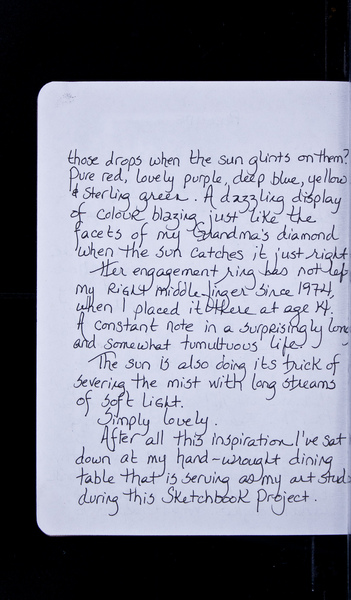 those drops when the sun glints on them?
Pure red, lovely purple, deep blue, yellow
& sterling green. A dazzling display
of colour blazing just like the
facets of my Grandma's diamond
when the sun catches it just right
Her engagement ring has not lef
my Right middle finger since 1974,
when I placed it there at age 14.
A constant note in a surprisingly long
and somewhat tumultuous life
The sun is also doing its trick of
severing the mist with long streams
of soft light.
Simply lovely.
After all this inspiration I've sat
down at my hand-wrought dining
table that is serving as my art stud
during this Sketchbook Project.